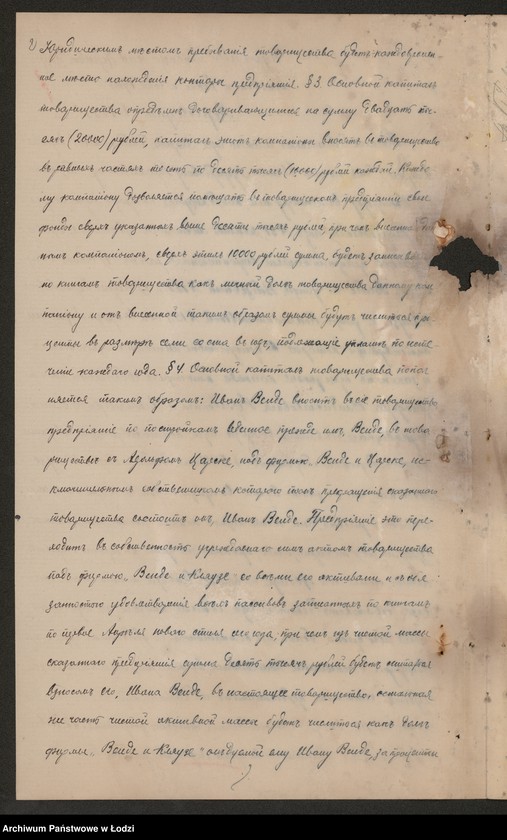 2) Юридическимъ мѣстомъ пребыванiя товарищества будетъ каждовремен-
ное мѣсто нахожденiя конторы предпрiятiя. § 3. Основной капиталъ
товарищества опредѣленъ договаривающимися на сумму двадцать ты-
сячъ (20000) рублей, капиталъ этотъ компанiоны вносятъ въ товарищество
въ равныхъ частяхъ то есть по десять тысячъ (10000) рублей каждый. Каждо-
му компанiону дозволяется помѣщать въ товарищескомъ предпрiятiи свои
фонды сверхъ указанныхъ выше десяти тысячъ рублей, при чемъ
нымъ компанiономъ, сверхъ этихъ 10000 рублей сумма, будетъ записана
по книгамъ товарищества какъ личный долгъ товарищества данному ком-
панiону и отъ внесенной такимъ образомъ суммы будутъ числиться про-
центы въ размѣрѣ семи со ста въ годъ, подлежащiе уплатѣ по исте-
ченiе каждаго года. § 4. Основной капиталъ товарищества попол-
няется такимъ образомъ: Иванъ Венде вноситъ въ это товарищество
предпрiятiе по постройкамъ веденное прежде имъ, Венде, въ това-
риществѣ съ Адольфомъ Царске, подъ фирмою „Венде и Царске, ис-
ключительнымъ собственникомъ котораго послѣ прекращенiя сказаннаго
товарищества состоитъ онъ, Иванъ Венде. Предпрiятiе это пере-
ходитъ въ собственность учрежденнаго симъ актомъ товарищества
подъ фирмою „Венде и Клаузе" со всѣми его активами и съ обя-
занностью удовлетворенiя всѣхъ пассивовъ записанныхъ по книгамъ
по первое Апрѣля новаго стиля сего года, при чемъ изъ чистой массы
сказаннаго предпрiятiя сумма десять тысячъ рублей будетъ считаться
взносомъ его, Ивана Венде, въ настоящее товарищество, остальная
же часть чистой активной массы будетъ числиться какъ долгъ
фирмы „Венде и Клаузе" слѣдуемый ему Ивану Венде, за проценты
Archiwum Państwowe w Łodzi